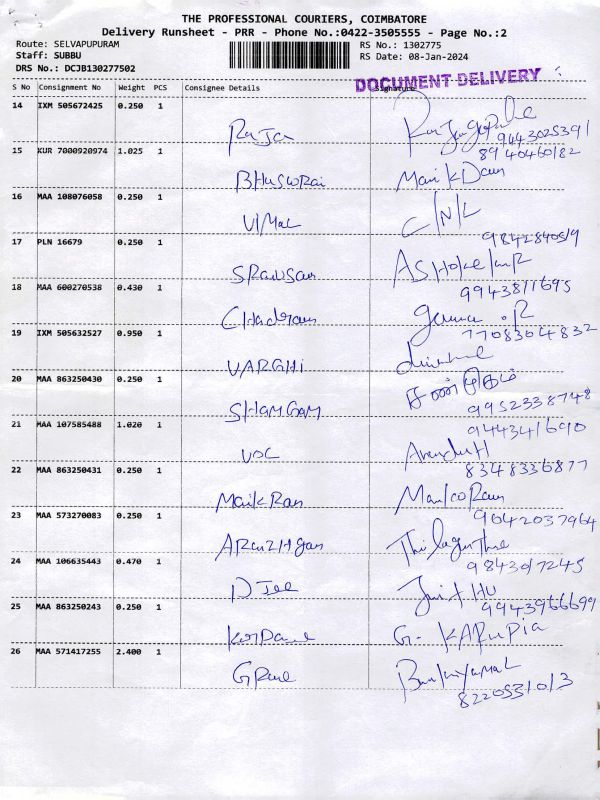 THE PROFESSIONAL COURIERS, COIMBATORE
Delivery Runsheet - PRR - Phone No.:0422-3505555 - Page No.:2
Route: SELVAPUPURAM
RS No.: 1302775
Staff: SUBBU
RS Date: 08-Jan-2024
DRS No.: DCJB130277502
DOCUMENT DELIVERY
S No Consignment No Weight PCS Consignee Details Signature
14 IXM 505672425 0.250 1
Raja
9443025391
15 KUR 7000920974 1.025 1
8940460182
16 MAA 108076058 0.250 1
VIMaL C/N/L
17 PLN 16679 0.250 1
9842840519
18 MAA 600270538 0.430 1
9943811695
19 IXM 505632527 0.950 1
7708304832
VARGHI
20 MAA 863250430 0.250 1
SHAMGAM
9952338748
21 MAA 107585488 1.020 1
944341690
VOC
22 MAA 863250431 0.250 1
8348336877
MaikRan
23 MAA 573270083 0.250 1
9042037964
24 MAA 106635443 0.470 1
9843017245
DJee
25 MAA 863250243 0.250 1
9943966699
G. KARUPIA
26 MAA 571417255 2.400 1
8220531013